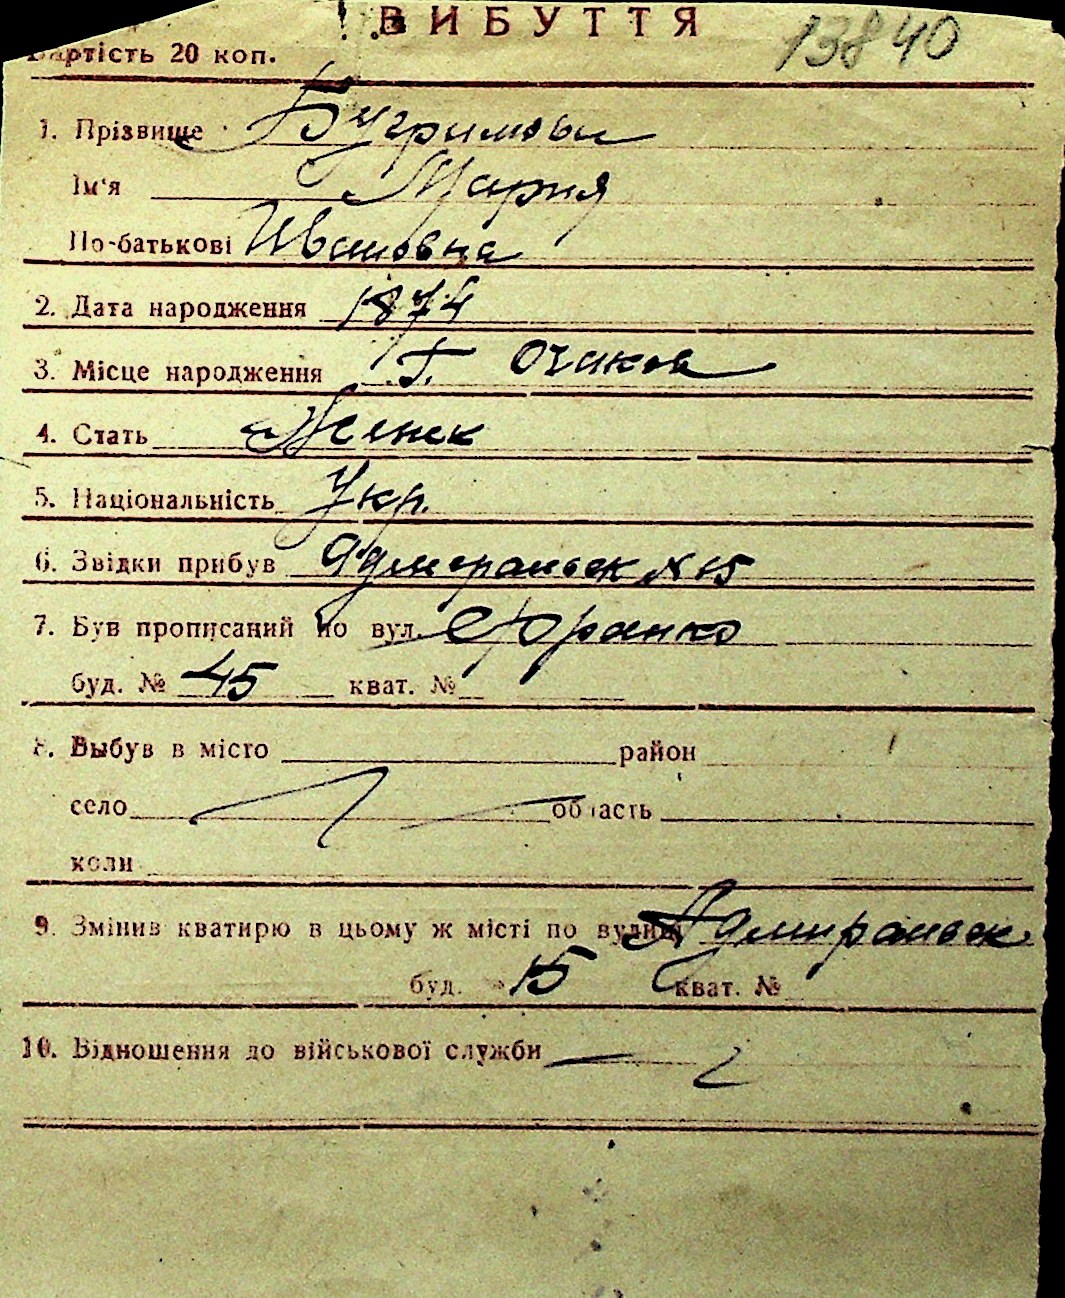 ВИБУТТЯ 13840
Вартість 20 коп.
1. Прізвище Бугримовы
Ім'я Мария
По-батькові Ивановна
2. Дата народження 1874
3. Місце народження Г. Очиков
4. Стать Женск
5. Національність Укр.
6. Звідки прибув Адмеральск № 15
7. Був прописаний по вул. Франко
буд. № 45 кват. №
8. Выбув в місто район
село область
коли
9. Змінив кватирю в цьому ж місті по вулиці Адмиральск
буд. 15 кват. №
10. Відношення до військової служби